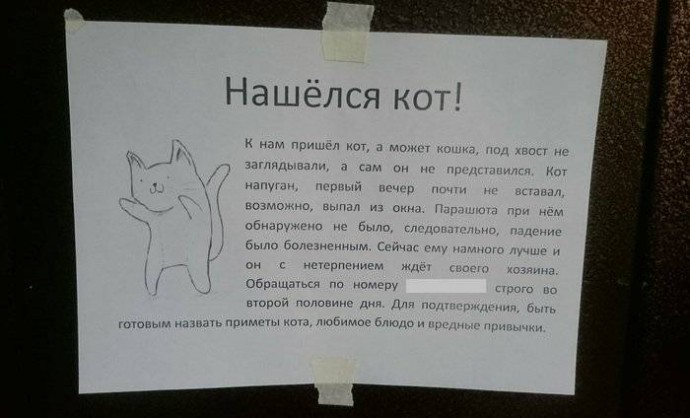 Нашёлся кот!
К нам пришёл кот, а может кошка, под хвост не
заглядывали, а сам он не представился. Кот
напуган, первый вечер почти не вставал,
возможно, выпал из окна. Парашюта при нём
обнаружено не было, следовательно, падение
было болезненным. Сейчас ему намного лучше и
он с нетерпением ждёт своего хозяина.
Обращаться по номеру строго во
второй половине дня. Для подтверждения, быть
готовым назвать приметы кота, любимое блюдо и вредные привычки.